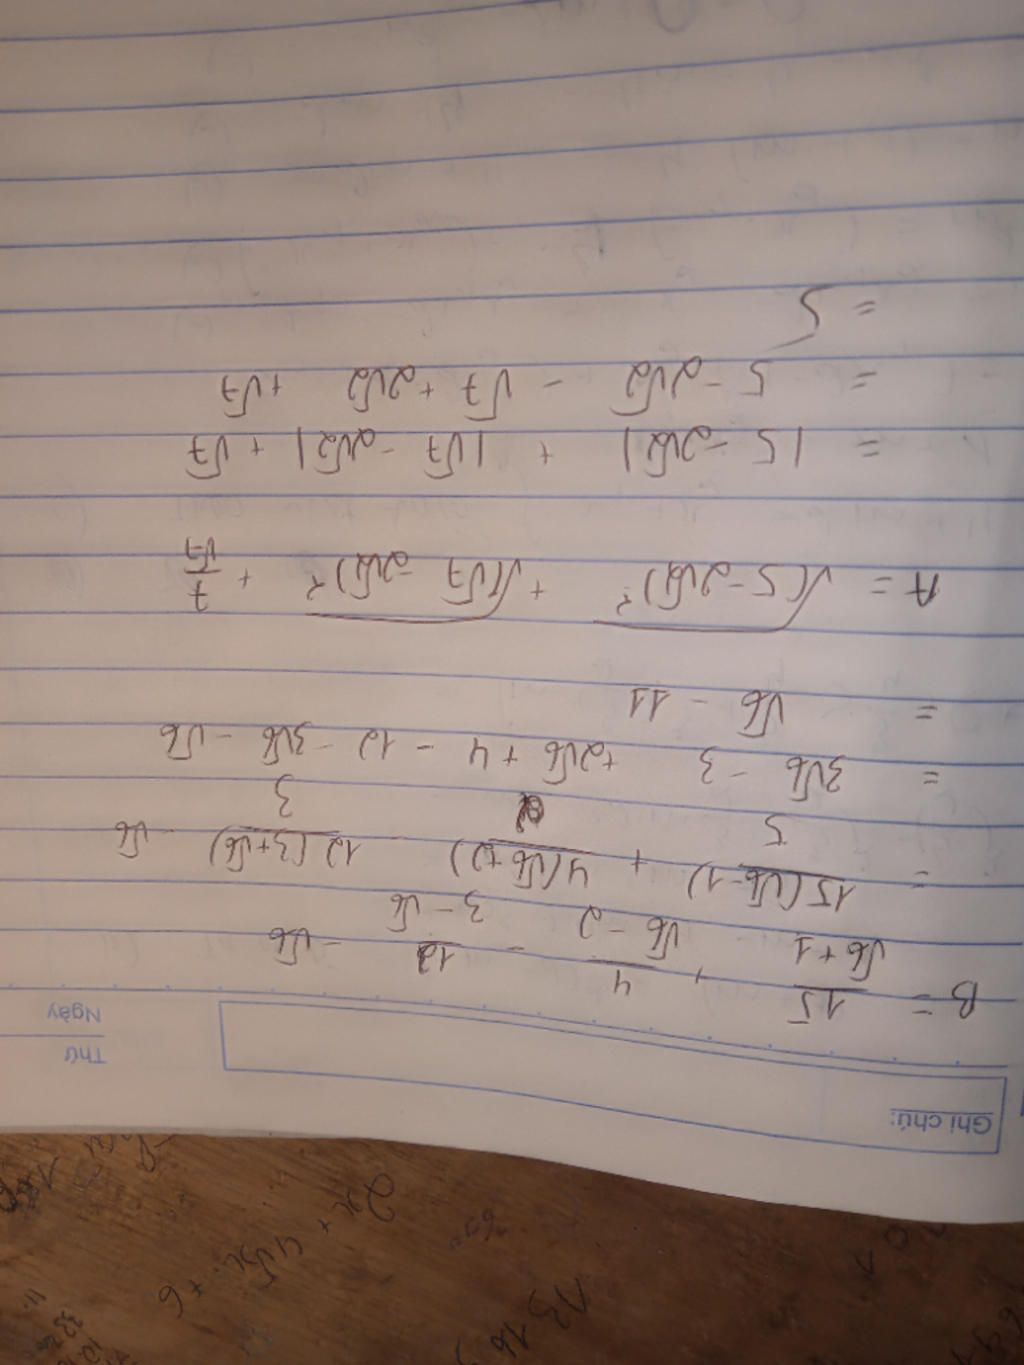 Ghi chú:
Thứ
Ngày
B = 15/(√6+1) + 4/(√6-2) - 12/(3-√6) - √6
= 15(√6-1)/5 + 4(√6+2)/2 - 12(3+√6)/3 - √6
= 3√6 - 3 + 2√6 + 4 - 12 - 3√6 - √6
= √6 - 11
A = √(5-2√2)² + √(√7-2√2)² + 7/√7
= |5-2√2| + |√7-2√2| + √7
= 5-2√2 - √7+2√2 + √7
= 5
2x + 4√x + 6